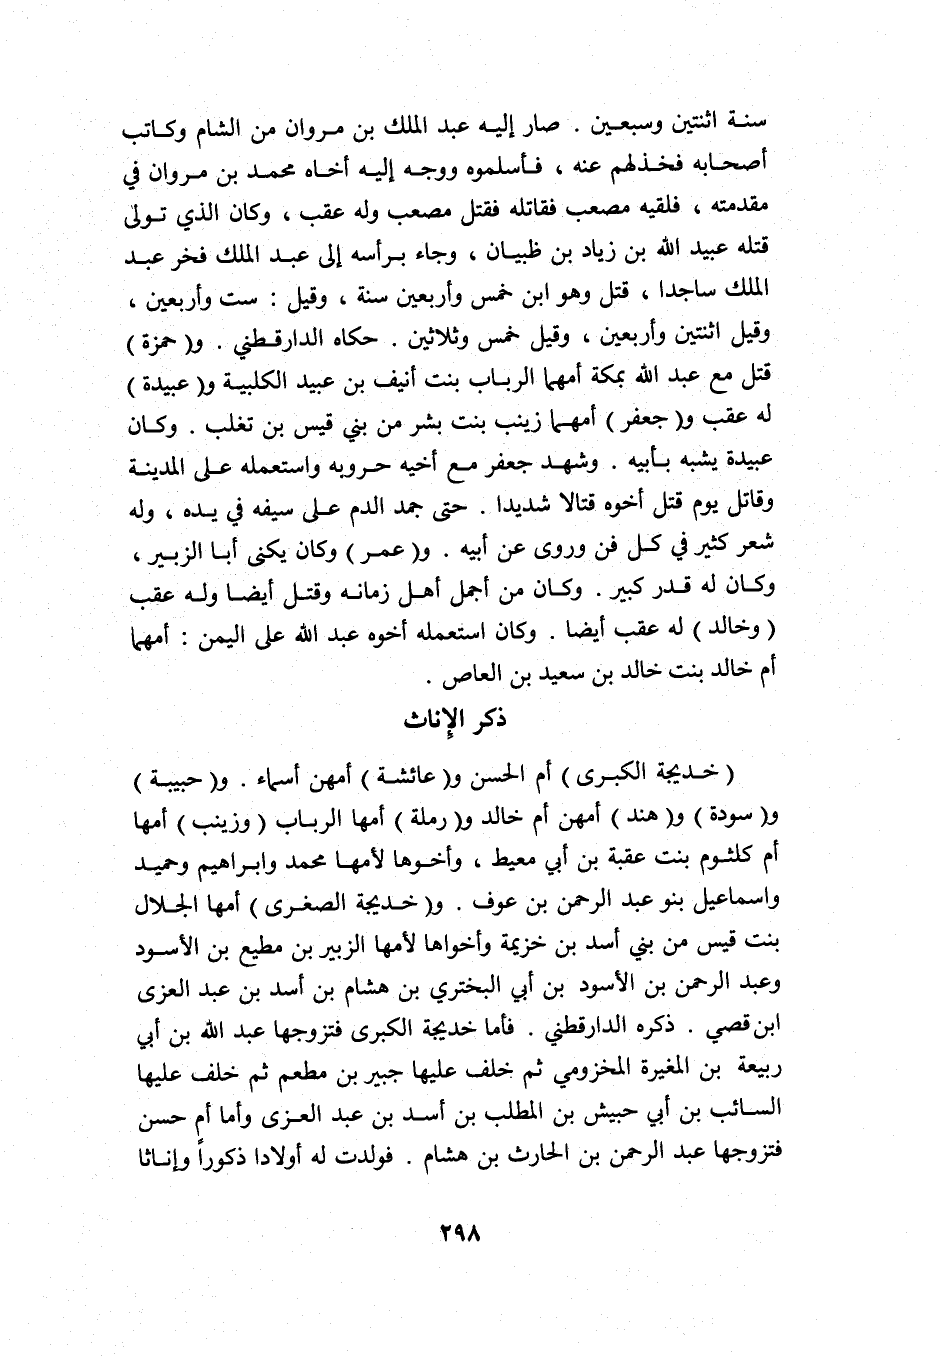 سنة اثنتين وسبعين . صار إليه عبد الملك بن مروان من الشام وكاتب
أصحابه فخذلهم عنه ، فأسلموه ووجه إليه أخاه محمد بن مروان في
مقدمته ، فلقيه مصعب فقاتله فقتل مصعب وله عقب ، وكان الذي تولى
قتله عبيد الله بن زياد بن ظبيان ، وجاء برأسه إلى عبد الملك فخر عبد
الملك ساجدا ، قتل وهو ابن خمس وأربعين سنة ، وقيل : ست وأربعين ،
وقيل اثنتين وأربعين ، وقيل خمس وثلاثين . حكاه الدارقطني . و( حمزة )
قتل مع عبد الله بمكة أمهما الرباب بنت أنيف بن عبيد الكلبية و( عبيدة )
له عقب و( جعفر ) أمهما زينب بنت بشر من بني قيس بن تغلب . وكان
عبيدة يشبه بأبيه . وشهد جعفر مع أخيه حروبه واستعمله على المدينة
وقاتل يوم قتل أخوه قتالا شديدا . حتى جمد الدم على سيفه في يده ، وله
شعر كثير في كل فن وروى عن أبيه . و( عمر ) وكان يكنى أبا الزبير ،
وكان له قدر كبير . وكان من أجمل أهل زمانه وقتل أيضا وله عقب
( وخالد ) له عقب أيضا . وكان استعمله أخوه عبد الله على اليمن : أمهما
أم خالد بنت خالد بن سعيد بن العاص .
ذكر الإناث
( خديجة الكبرى ) أم الحسن و( عائشة ) أمهن أسماء . و( حبيبة )
و( سودة ) و( هند ) أمهن أم خالد و( رملة ) أمها الرباب ( وزينب ) أمها
أم كلثوم بنت عقبة بن أبي معيط ، وأخوها لأمها محمد وابراهيم وحميد
واسماعيل بنو عبد الرحمن بن عوف . و( خديجة الصغرى ) أمها الجلال
بنت قيس من بني أسد بن خزيمة وأخواها لأمها الزبير بن مطيع بن الأسود
وعبد الرحمن بن الأسود بن أبي البختري بن هشام بن أسد بن عبد العزى
ابن قصي . ذكره الدارقطني . فأما خديجة الكبرى فتزوجها عبد الله بن أبي
ربيعة بن المغيرة المخزومي ثم خلف عليها جبير بن مطعم ثم خلف عليها
السائب بن أبي حبيش بن المطلب بن أسد بن عبد العزى وأما أم حسن
فتزوجها عبد الرحمن بن الحارث بن هشام . فولدت له أولادا ذكوراً وإناثا
٢٩٨